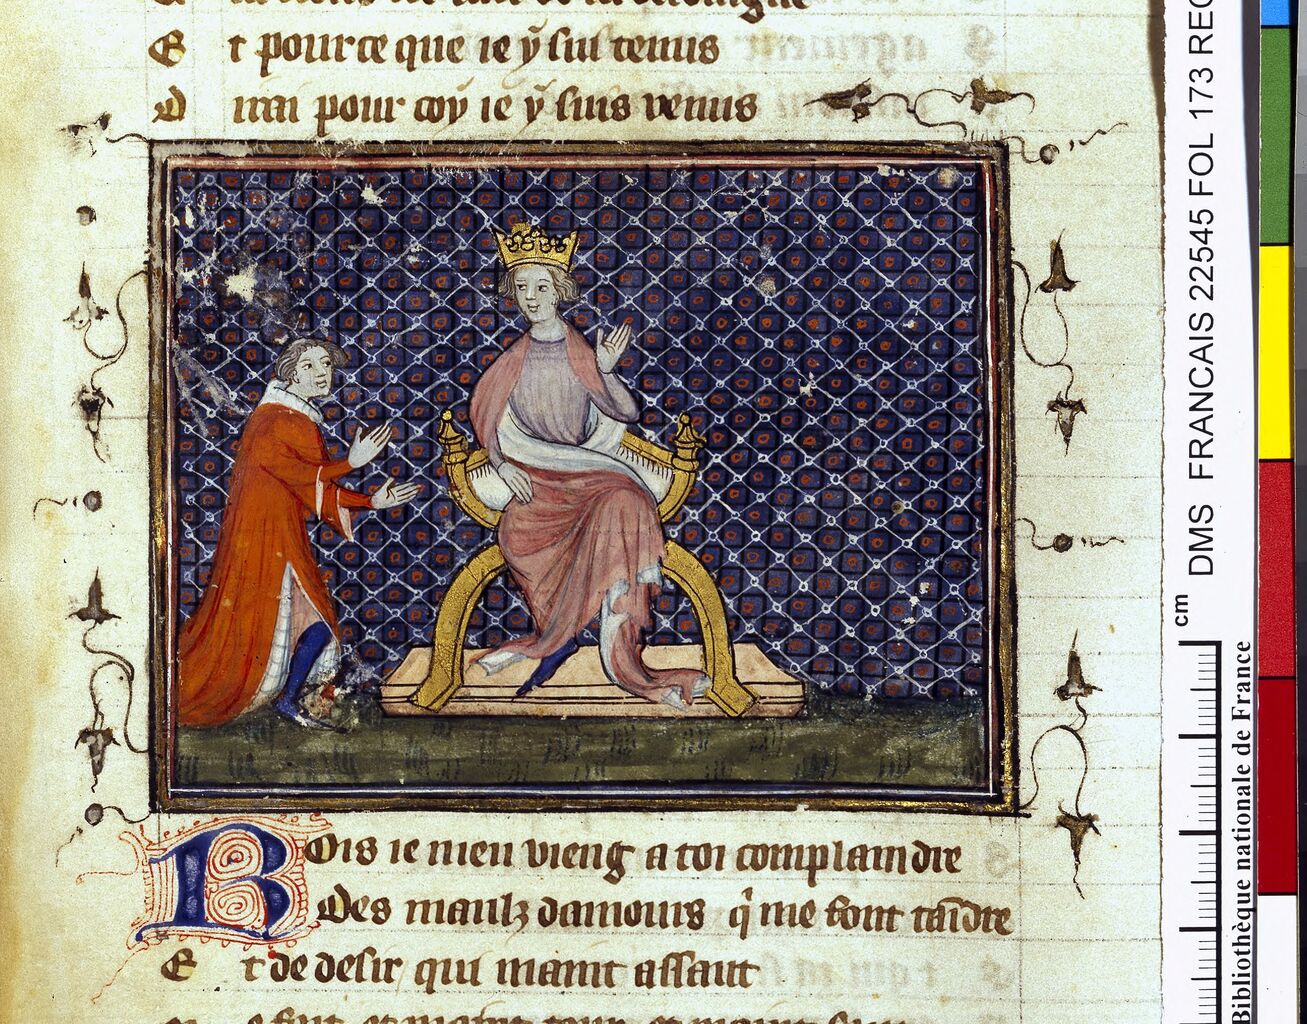 E t pource que ie ẏ sui tenus
D irai pour coẏ ie ẏ suis venus
Rois ie men vieng a toi complaindre
Des maulz damours q̇ me font tai̅dre
E t de desir qui maint assaut
DMS FRANCAIS 22545 FOL 173 REC
cm
Bibliothèque nationale de France